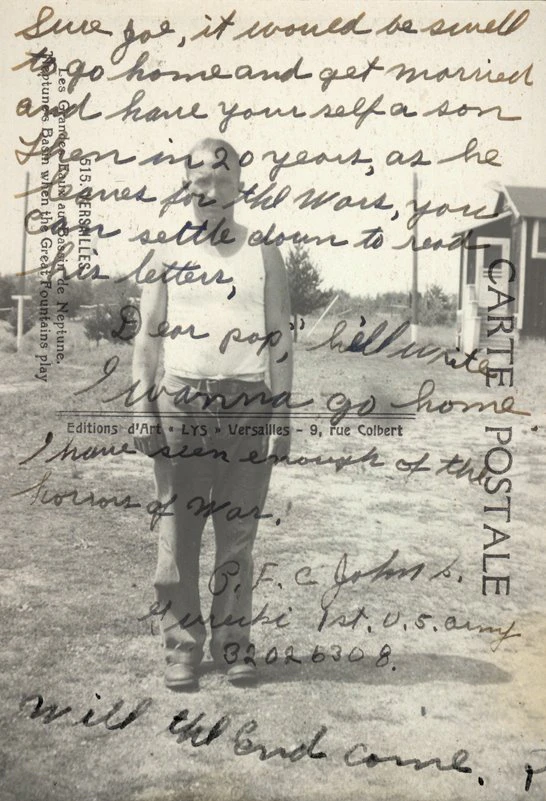 Sure Joe, it would be swell
to go home and get married
and have your self a son
Then in 20 years, as he
for the Wars, you
can settle down to read
his letters,
"Dear pop," he'll write
I wanna go home.
I have seen enough of the
horrors of War.!
P.F.C John S.
1st. U.S. army
32026308.
Will the End come.
515 VERSAILLES
Les Grandes Eaux au Bassin de Neptune.
Neptune's Basin when the Great Fountains play
Editions d'Art « LYS » Versailles - 9, rue Colbert
CARTE POSTALE